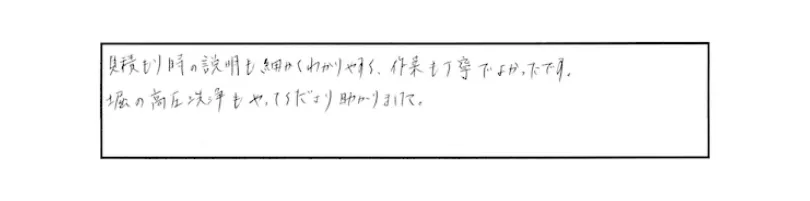 見積もり時の説明も細かくわかりやすく、作業も丁寧でよかったです。
堀の高圧洗浄もやってくださり助かりました。